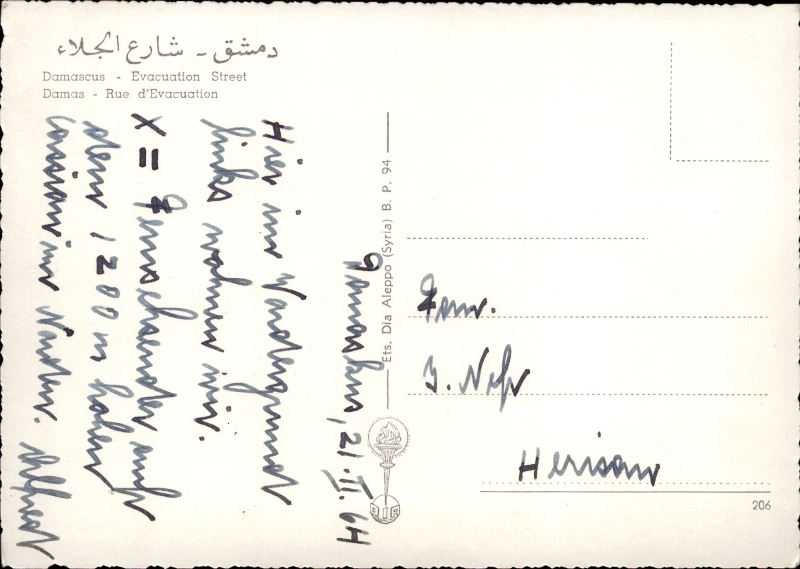 دمشق - شارع الجلاء
Damascus - Evacuation Street
Damas - Rue d'Evacuation
Damaskus, 21. II. 64
Hier im Vordergrund
links wohnen wir.
X = Fernsehsender auf
dem 1200 m hohen
Cassioun im Norden. Alfred
Ets. Dia Aleppo (Syria) B. P. 94
Fam.
J. Nef
Herisau
206